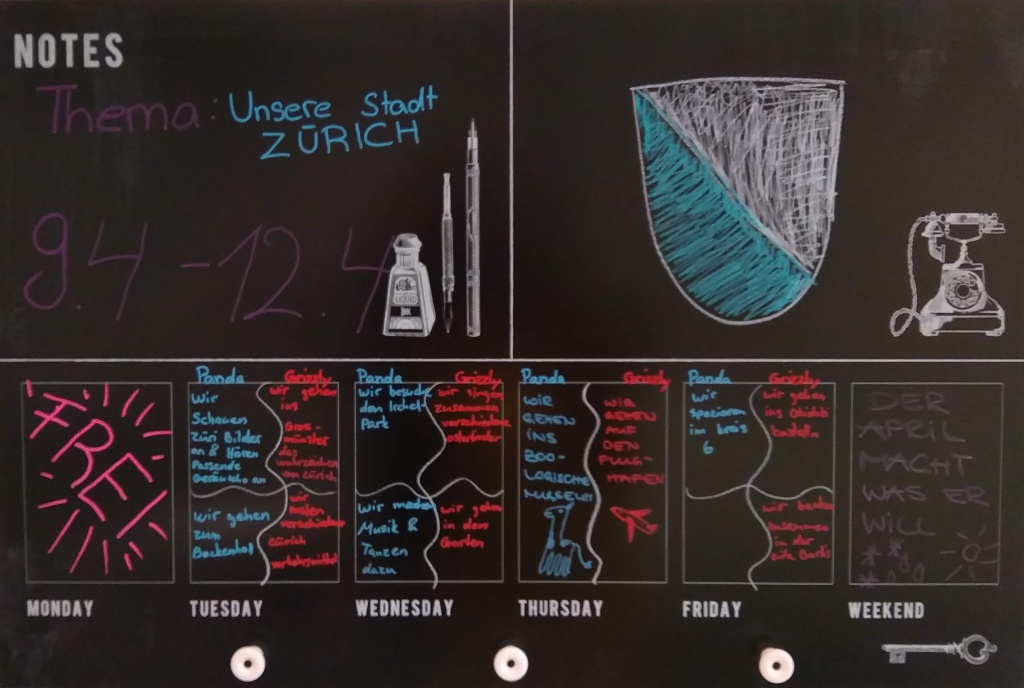 NOTES
Thema: Unsere Stadt
ZÜRICH
9.4 - 12.4
FREI
MONDAY
Panda
Wir
Schauen
Züri Bilder
an & Hören
Passende
Geräusche an
Wir gehen
zum
Beckenhof
Grizzly
wir gehen
ins
Gross-
münster
das
wahrzeichen
von Zürich
wir
malen
verschiedene
Zürich
verkehrsmittel
TUESDAY
Panda
Wir besuche
den Irchel-
Park
Wir machen
Musik &
Tanzen
dazu
Grizzly
wir singen
zusammen
verschiedene
wir gehen
in den
Garten
WEDNESDAY
Panda
WIR
GEHEN
INS
ZOO-
LOGISCHE
MUSEUM
Grizzly
WIR
GEHEN
AUF
DEN
FLUG-
HAFEN
THURSDAY
Panda
wir
spazieren
im kreis
6
Grizzly
wir gehen
ins
wir
zusammen
in der
FRIDAY
DER
APRIL
MACHT
WAS ER
WILL
WEEKEND